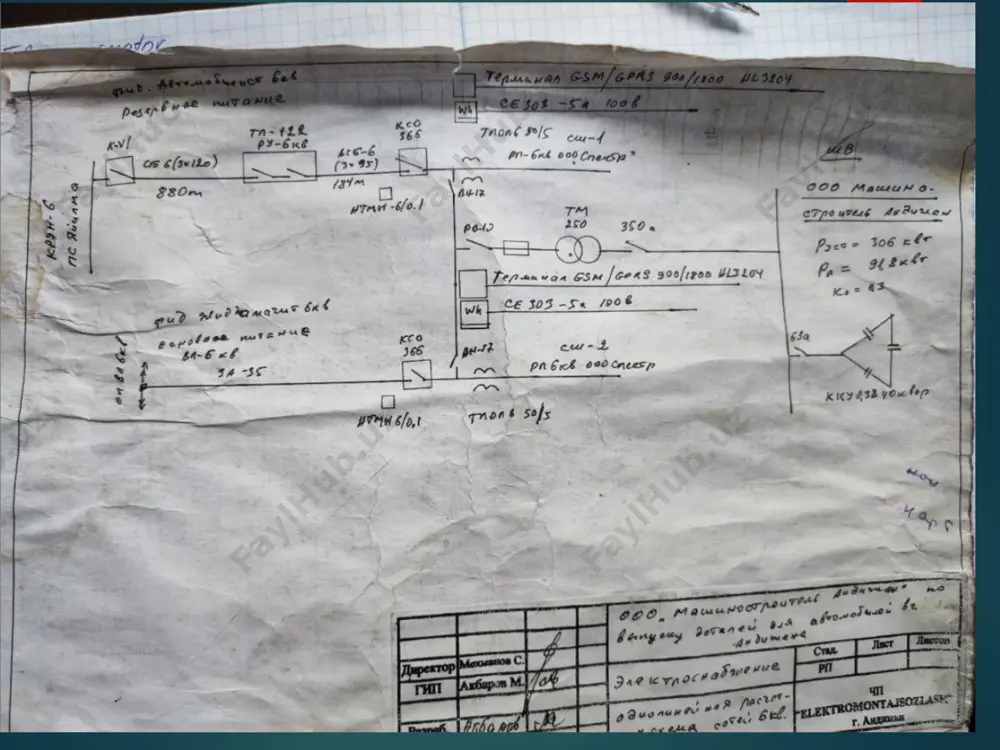 фид. Автомобилист 6кв
Резервное питание
Терминал GSM/GPRS 900/1800 HL3204
Wh
СЕ 303 -5а 100в
К-VI
СБ 6(3×120)
880m
ТП-122
РУ-6кв
АСБ-6
(3×95)
184м
КСО
366
НТМИ-6/0.1
ТПОЛ6 50/5
СШ-1
РП-6кв ООО Спектр"
ВН-17
КРУН-6
ПС Яйилма
ШВ
ООО Машино-
строитель Андижан
Руст = 306 квт
Рр = 91,8 квт
ТМ
250
350а
Терминал GSM/GPRS 900/1800 HL3204
Wh
СЕ 303 -5а 100в
основное питание
ВЛ-6 кв
ЗА-35
КСО
366
ВН-17
СШ-2
РП 6кв ООО Спектр
НТМИ 6/0.1
ТПОЛ6 50/5
63а
ККУ 0,38 40квар
FaylHub.uz
FaylHub.uz
ООО „Машиностроитель Андижан" по
выпуску деталей для автомобилей в г.
Андижане
Директор Мехманов С.
ГИП Акбаров М.
Разраб.
Электроснабжение
Стад. Лист Листов
РП
однолинейная расчет-
схема сетей 6кв.
ЧП
"ELEKTROMONTAJSOZLASH"
г. Андижан